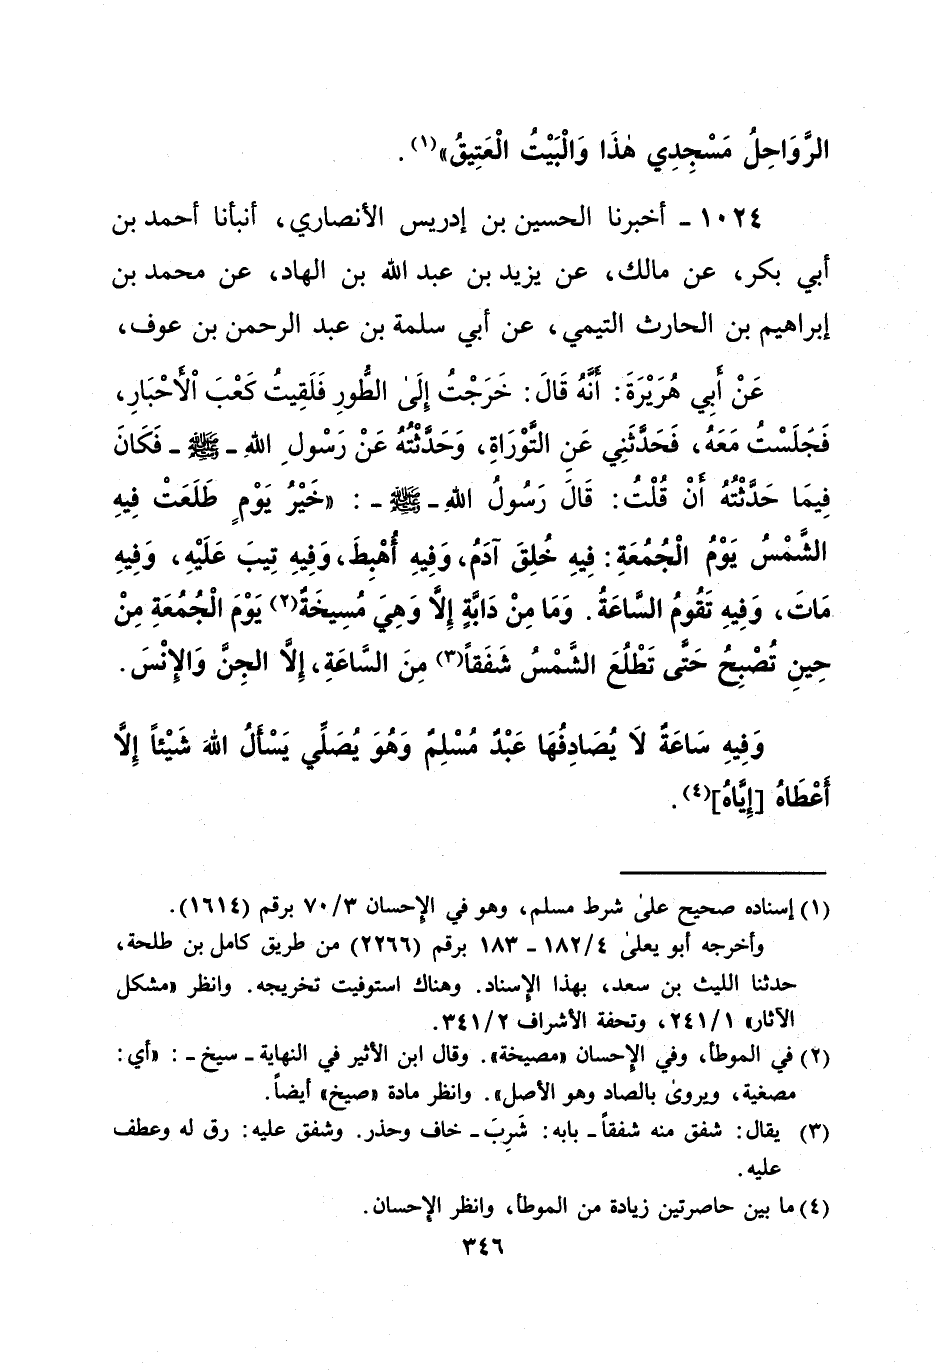 الرَّوَاحِلُ مَسْجِدِي هٰذَا وَالْبَيْتُ الْعَتِيقُ»(١).
١٠٢٤ - أخبرنا الحسين بن إدريس الأنصاري، أنبأنا أحمد بن
أبي بكر، عن مالك، عن يزيد بن عبد الله بن الهاد، عن محمد بن
إبراهيم بن الحارث التيمي، عن أبي سلمة بن عبد الرحمن بن عوف،
عَنْ أَبِي هُرَيْرَةَ: أَنَّهُ قَالَ: خَرَجْتُ إِلَىٰ الطُّورِ فَلَقِيتُ كَعْبَ الْأَحْبَارِ،
فَجَلَسْتُ مَعَهُ، فَحَدَّثَنِي عَنِ التَّوْرَاةِ، وَحَدَّثْتُهُ عَنْ رَسُولِ اللهِ - ﷺ - فَكَانَ
فِيمَا حَدَّثْتُهُ أَنْ قُلْتُ: قَالَ رَسُولُ اللهِ - ﷺ - : «خَيْرُ يَوْمٍ طَلَعَتْ فِيهِ
الشَّمْسُ يَوْمُ الْجُمُعَةِ: فِيهِ خُلِقَ آدَمُ، وَفِيهِ أُهْبِطَ، وَفِيهِ تِيبَ عَلَيْهِ، وَفِيهِ
مَاتَ، وَفِيهِ تَقُومُ السَّاعَةُ. وَمَا مِنْ دَابَّةٍ إِلَّا وَهِيَ مُسِيخَةٌ(٢) يَوْمَ الْجُمُعَةِ مِنْ
حِينِ تُصْبِحُ حَتَّى تَطْلُعَ الشَّمْسُ شَفَقاً(٣) مِنَ السَّاعَةِ، إِلَّا الجِنَّ وَالإِنْسَ.
وَفِيهِ سَاعَةٌ لَا يُصَادِفُهَا عَبْدٌ مُسْلِمٌ وَهُوَ يُصَلِّي يَسْأَلُ اللهَ شَيْئاً إِلَّا
أَعْطَاهُ [إِيَّاهُ](٤).
(١) إسناده صحيح علىٰ شرط مسلم، وهو في الإحسان ٧٠/٣ برقم (١٦١٤).
وأخرجه أبو يعلىٰ ١٨٢/٤ - ١٨٣ برقم (٢٢٦٦) من طريق كامل بن طلحة،
حدثنا الليث بن سعد، بهذا الإسناد. وهناك استوفيت تخريجه. وانظر «مشكل
الآثار» ٢٤١/١، وتحفة الأشراف ٣٤١/٢.
(٢) في الموطأ، وفي الإحسان «مصيخة». وقال ابن الأثير في النهاية - سيخ - : «أي:
مصغية، ويروىٰ بالصاد وهو الأصل». وانظر مادة «صيخ» أيضاً.
(٣) يقال: شفق منه شفقاً - بابه: شَرِبَ - خاف وحذر. وشفق عليه: رق له وعطف
عليه.
(٤) ما بين حاصرتين زيادة من الموطأ، وانظر الإحسان.
٣٤٦